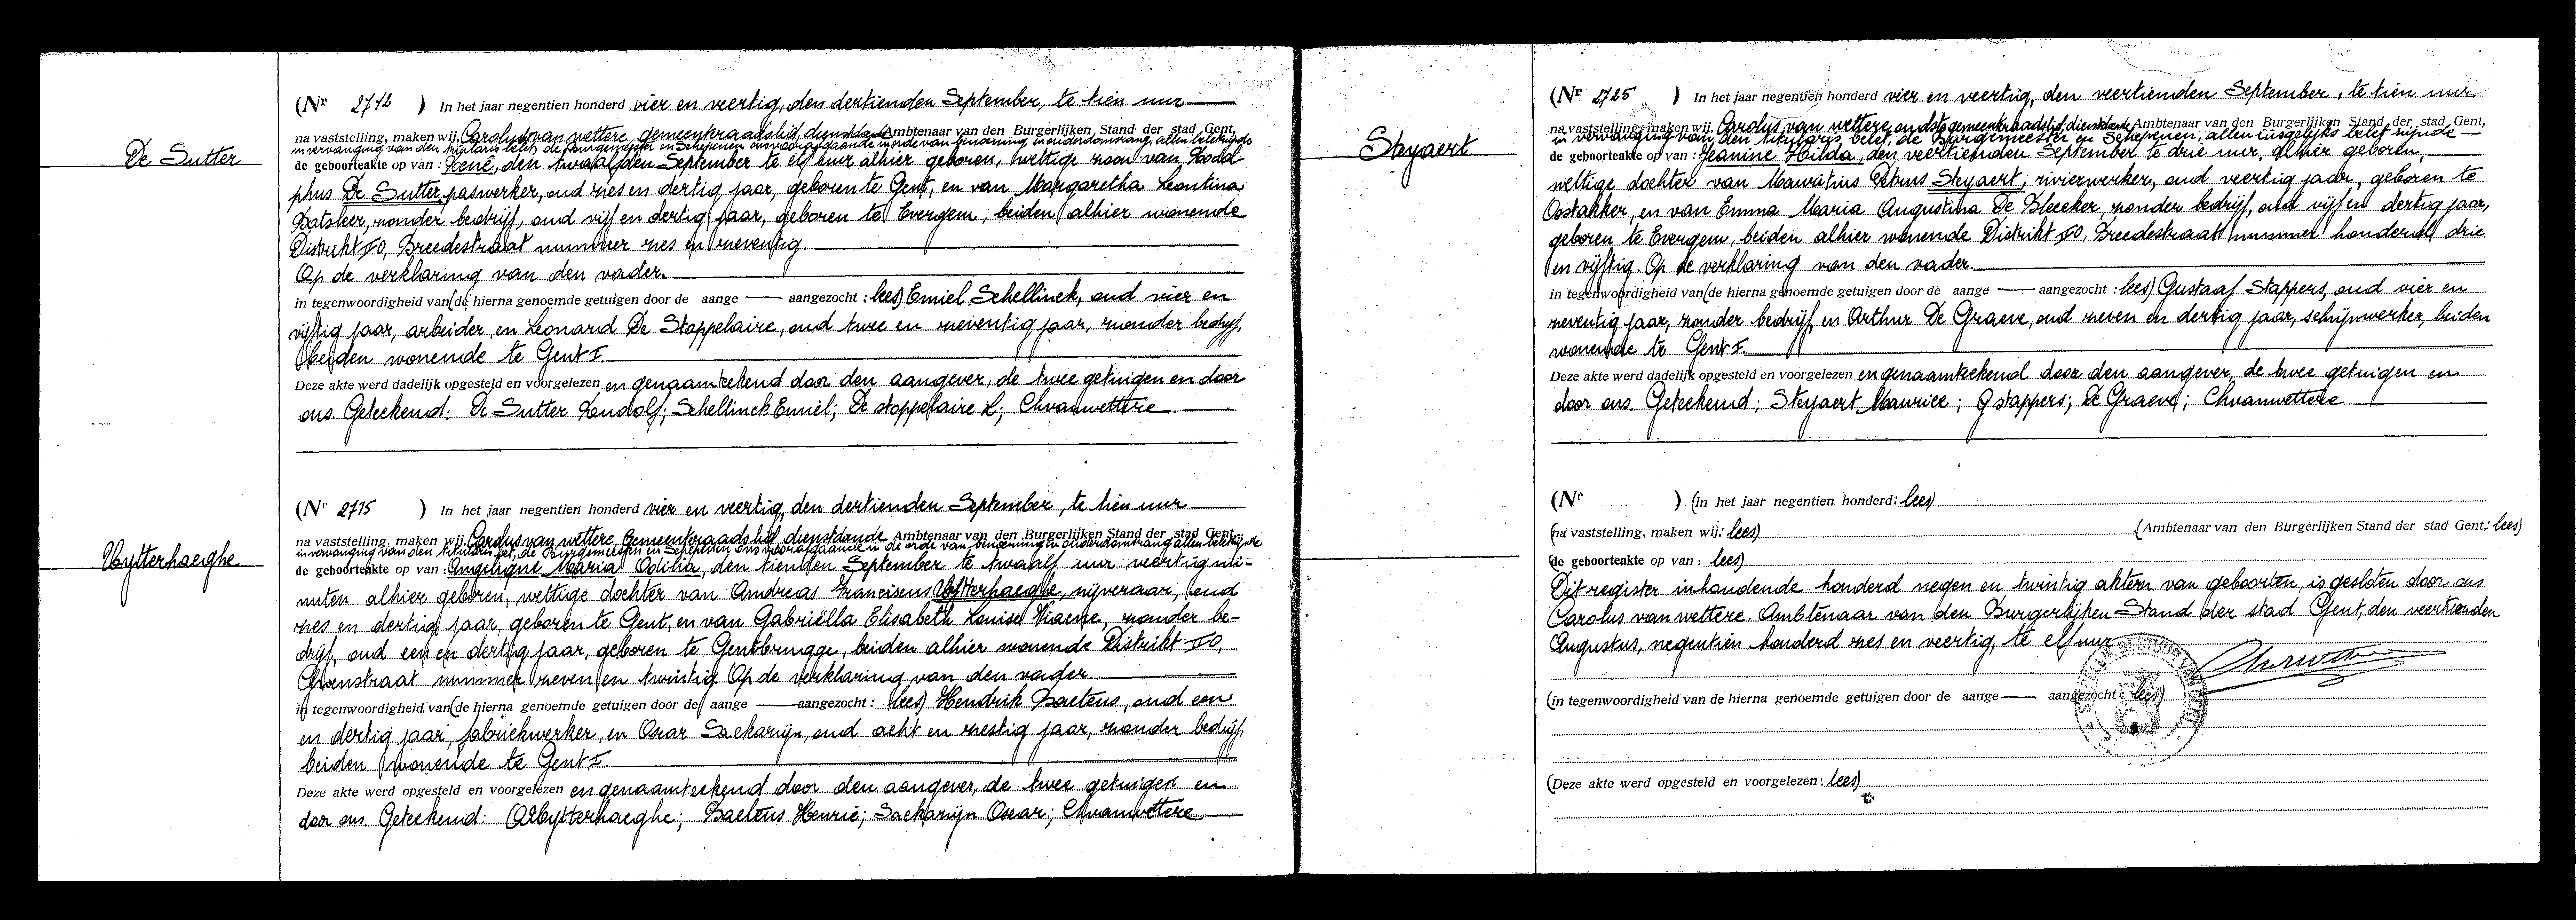 De Sutter
(Nr 2712 ) In het jaar negentien honderd vier en veertig, den dertienden September, te tien uur
na vaststelling, maken wij, Carolus van wettere, gemeenteraadslid, dienstdoende Ambtenaar van den Burgerlijken Stand der stad Gent,
in vervanging van den titularis belet, de Burgemeester en Schepenen ons voorafgaande in orde van benoeming, in ouderdomsrang, allen belet zijnde
de geboorteakte op van : René, den twaalfden September te elf uur alhier geboren, wettige zoon van Rodol
phus De Sutter, paswerker, oud zes en dertig jaar, geboren te Gent, en van Margaretha Leontina
Batsleer, zonder bedrijf, oud vijf en dertig jaar, geboren te Evergem, beiden alhier wonende
Distrikt FO, Breedestraat nummer zes en zeventig.
Op de verklaring van den vader.
in tegenwoordigheid van (de hierna genoemde getuigen door de aange — aangezocht : lees) Emiel Schellinck, oud vier en
vijftig jaar, arbeider, en Leonard De Stoppelaire, oud twee en zeventig jaar, zonder bedrijf,
beiden wonende te Gent I.
Deze akte werd dadelijk opgesteld en voorgelezen en genaamteekend door den aangever, de twee getuigen en door
ons. Geteekend: De Sutter Roudolf; Schellinck Emiel; De stoppelaire L; Chvanwettere
Uytterhaeghe
(Nr 2715 ) In het jaar negentien honderd vier en veertig, den dertienden September, te tien uur
na vaststelling, maken wij, Carolus van wettere, Gemeenteraadslid, dienstdoende Ambtenaar van den Burgerlijken Stand der stad Gent,
in vervanging van den titularis belet, de Burgemeester en Schepenen ons voorafgaande in de orde van benoeming in ouderdomsrang allen belet zijnde
de geboorteakte op van : Angeligne Maria Odilia, den tienden September te twaalf uur veertig mi-
nuten alhier geboren, wettige dochter van Andreas Franciscus Uytterhaeghe, nijveraar, oud
zes en dertig jaar, geboren te Gent, en van Gabriëlla Elisabeth Louise Viaene, zonder be-
drijf, oud een en dertig jaar, geboren te Gentbrugge, beiden alhier wonende Distrikt FO,
straat nummer zeven en twintig. Op de verklaring van den vader.
in tegenwoordigheid van (de hierna genoemde getuigen door de aange — aangezocht : lees) Hendrik Baeteus, oud een
en dertig jaar, fabriekwerker, en Oscar Sackarijn, oud acht en zestig jaar, zonder bedrijf,
beiden wonende te Gent I.
Deze akte werd opgesteld en voorgelezen en genaamteekend door den aangever, de twee getuigen en
door ons. Geteekend: Uytterhaeghe; Baeteus Henric; Sackarijn Oscar; Chvanwettere
Steyaert
(Nr 2725 ) In het jaar negentien honderd vier en veertig, den veertienden September, te tien uur.
na vaststelling, maken wij, Carolus van wettere, oudste gemeenteraadslid, dienstdoende Ambtenaar van den Burgerlijken Stand der stad Gent,
in vervanging van den titularis, belet, de Burgemeester en Schepenen, allen insgelijks belet zijnde
de geboorteakte op van : Jeanine Hilda, den veertienden September te drie uur, alhier geboren,
wettige dochter van Mauritius Petrus Steyaert, rivierwerker, oud veertig jaar, geboren te
Oostakker, en van Emma Maria Augustina De Bleecker, zonder bedrijf, oud vijf en dertig jaar,
geboren te Evergem, beiden alhier wonende Distrikt FO, Breedestraat nummer honderd drie
en vijftig. Op de verklaring van den vader.
in tegenwoordigheid van (de hierna genoemde getuigen door de aange — aangezocht : lees) Gustaaf Stappers, oud vier en
zeventig jaar, zonder bedrijf, en Arthur De Graeve, oud zeven en dertig jaar, schrijnwerker, beiden
wonende te Gent I.
Deze akte werd dadelijk opgesteld en voorgelezen en genaamteekend door den aangever, de twee getuigen en
door ons. Geteekend; Steyaert Maurice; G stappers; De Graeve; Chvanwettere
(Nr ) (In het jaar negentien honderd: lees)
(na vaststelling, maken wij: lees) (Ambtenaar van den Burgerlijken Stand der stad Gent,: lees)
(de geboorteakte op van : lees)
Dit register inhoudende honderd negen en twintig akten van geboorten, is gesloten door ons
Carolus van wettere. Ambtenaar van den Burgerlijken Stand der stad Gent, den veertienden
Augustus, negentien honderd zes en veertig, te elf uur
(in tegenwoordigheid van de hierna genoemde getuigen door de aange — aangezocht : lees)
(Deze akte werd opgesteld en voorgelezen : lees)